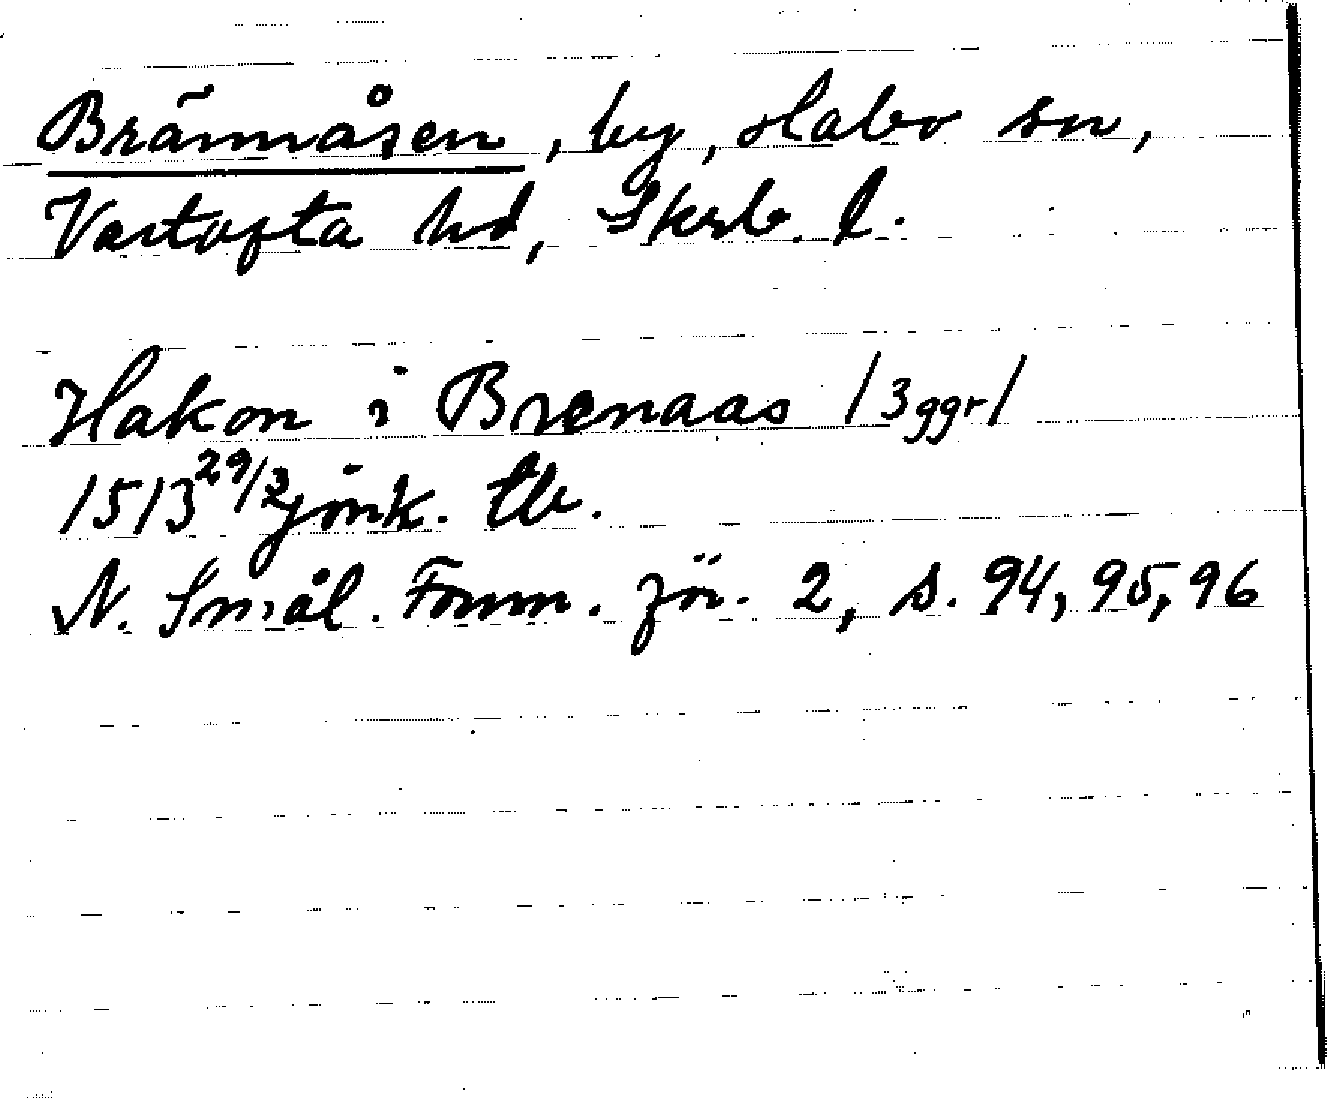 Brännåsen, by, Habo sn,
Vartofta hd, Skrb. l.
Hakon i Brenaas /3ggr/
1513 29/3 Jönk. tb.
N. Smål. Fornm. för. 2, s. 94, 95, 96